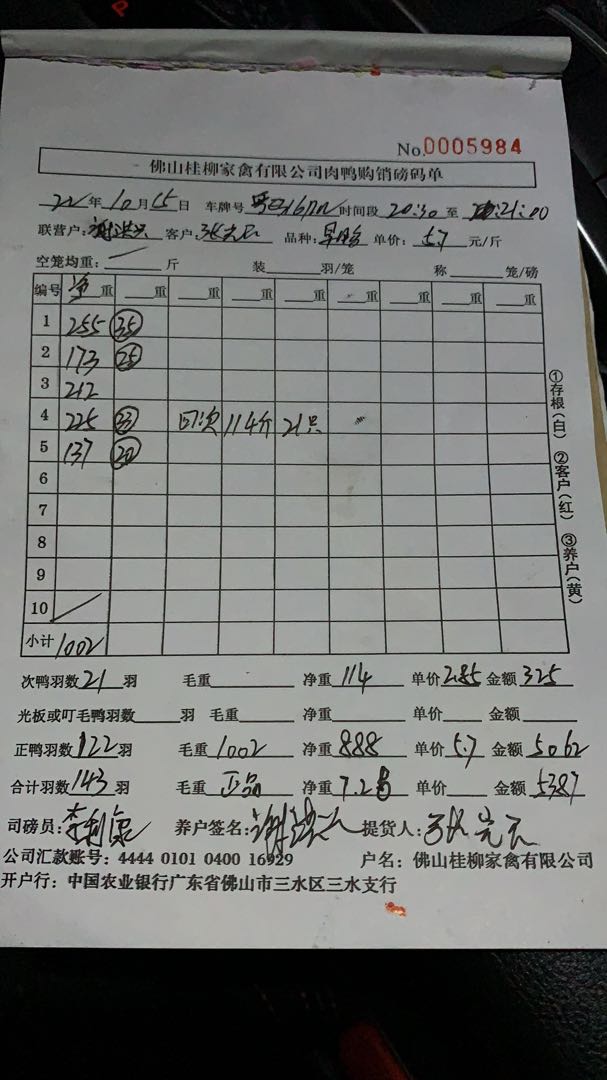 No.0005984
佛山桂柳家禽有限公司肉鸭购销磅码单
22年10月15日 车牌号 时间段 20:30 至 21:00
联营户: 客户: 品种: 单价: 5.7 元/斤
空笼均重: 斤 装 羽/笼 称 笼/磅
编号 净重 重 重 重 重 重 重 重 重
1 255 35
2 173 25
3 212
4 225 33 日次 114斤 21只
5 137 20
6
7
8
9
10
小计 1002
次鸭羽数 21 羽 毛重 净重 114 单价 2.85 金额 325
光板或叮毛鸭羽数 羽 毛重 净重 单价 金额
正鸭羽数 122 羽 毛重 1002 净重 888 单价 5.7 金额 5062
合计羽数 143 羽 毛重 正品 净重 7.28 单价 金额 5387
司磅员: 养户签名: 提货人:
公司汇款账号: 4444 0101 0400 16929 户名: 佛山桂柳家禽有限公司
开户行: 中国农业银行广东省佛山市三水区三水支行
①存根(白) ②客户(红) ③养户(黄)